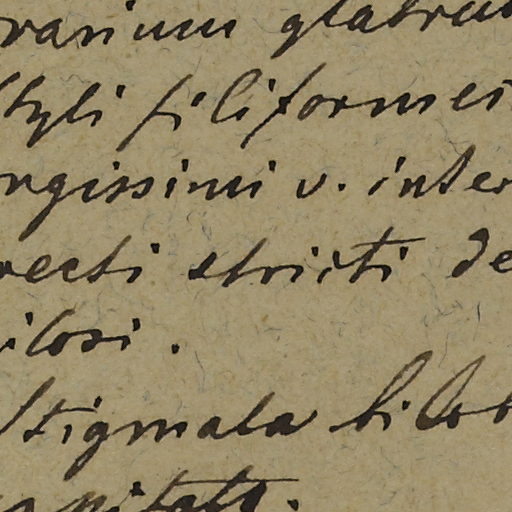 varium glabrum
Styli filiformes
ngissimi v. inter
recti stricti de
ilosi.
Stigmata bilob
capitata.